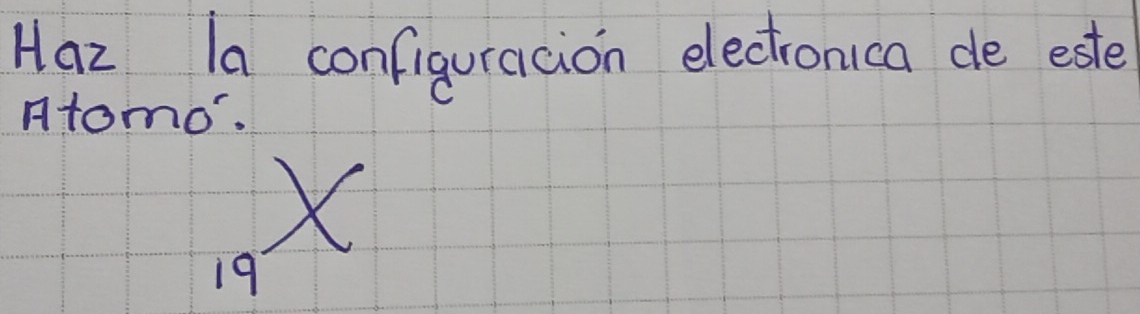 Haz la configuración electronica de este
Atomo.
19X